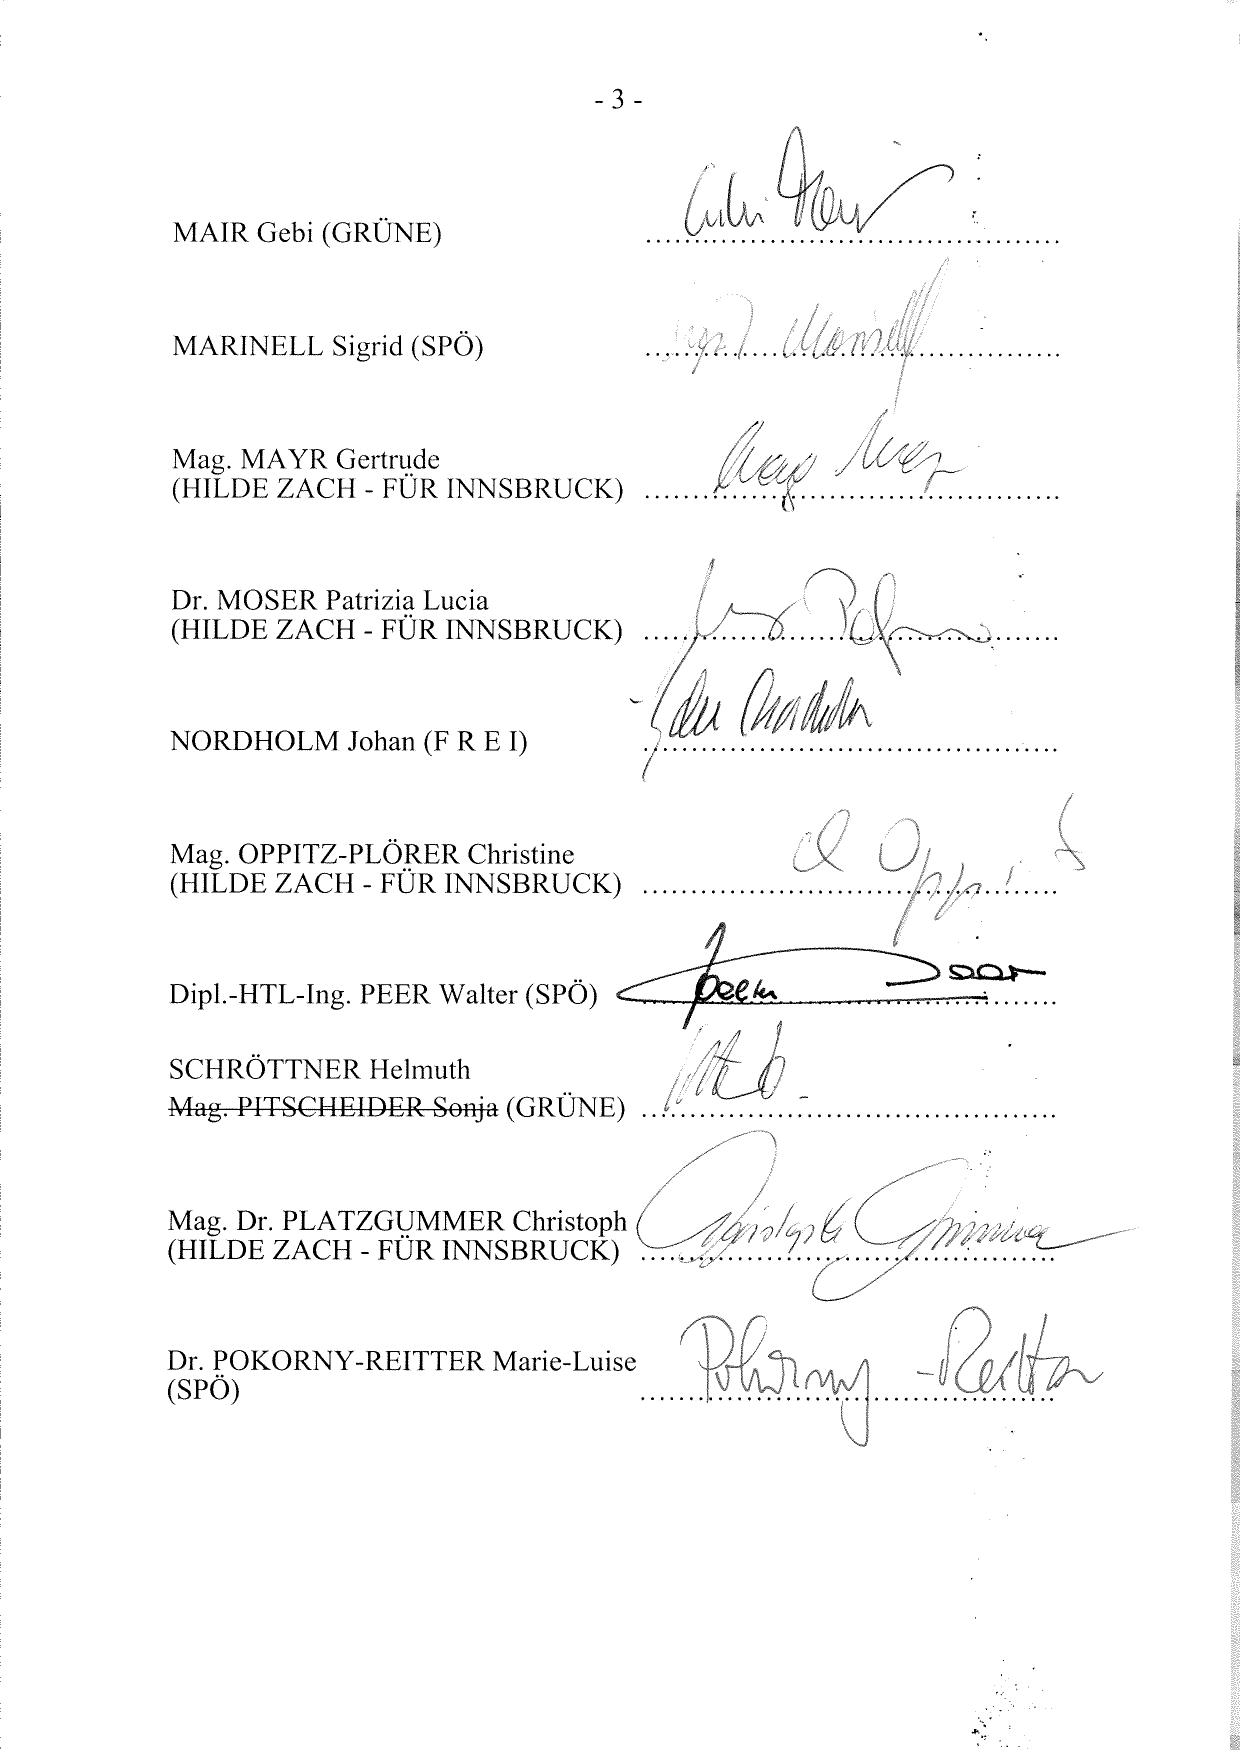 - 3 -
MAIR Gebi (GRÜNE)
MARINELL Sigrid (SPÖ)
Mag. MAYR Gertrude
(HILDE ZACH - FÜR INNSBRUCK)
Dr. MOSER Patrizia Lucia
(HILDE ZACH - FÜR INNSBRUCK)
NORDHOLM Johan (F R E I)
Mag. OPPITZ-PLÖRER Christine
(HILDE ZACH - FÜR INNSBRUCK)
Dipl.-HTL-Ing. PEER Walter (SPÖ)
SCHRÖTTNER Helmuth
Mag. PITSCHEIDER Sonja (GRÜNE)
Mag. Dr. PLATZGUMMER Christoph
(HILDE ZACH - FÜR INNSBRUCK)
Dr. POKORNY-REITTER Marie-Luise Pokorny-Reitter
(SPÖ)